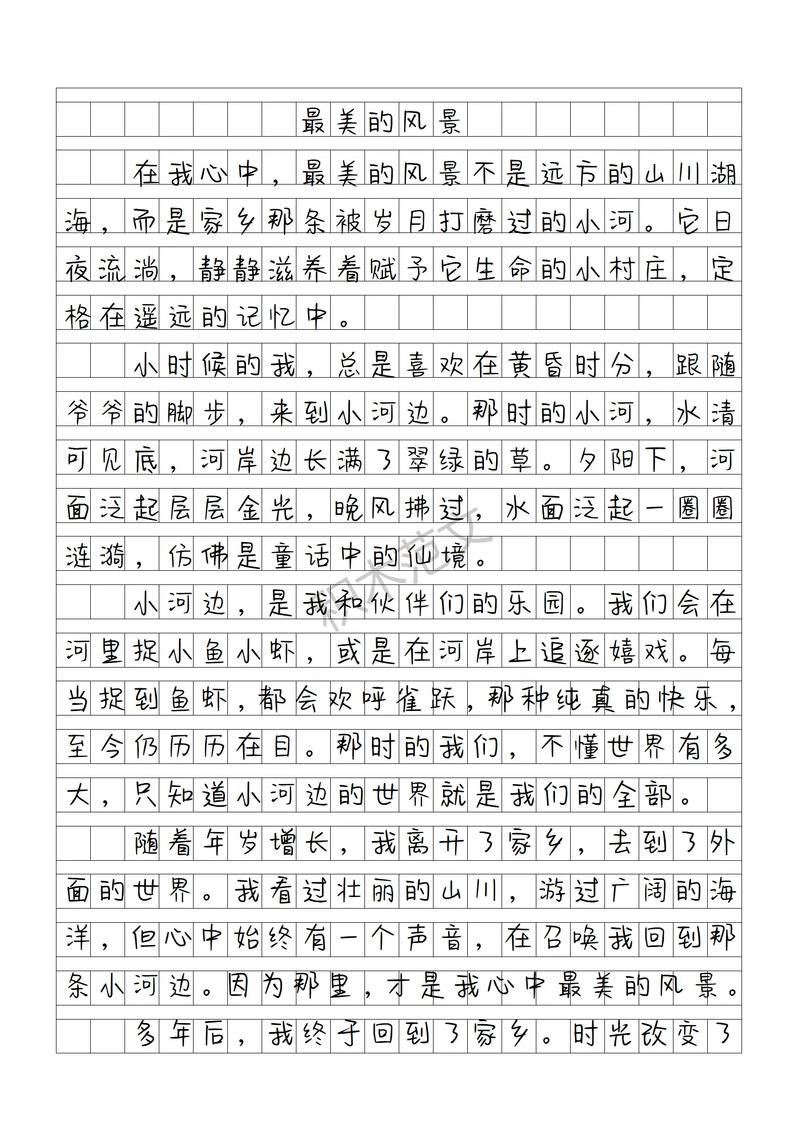 最美的风景
在我心中，最美的风景不是远方的山川湖
海，而是家乡那条被岁月打磨过的小河。它日
夜流淌，静静滋养着赋予它生命的小村庄，定
格在遥远的记忆中。
小时候的我，总是喜欢在黄昏时分，跟随
爷爷的脚步，来到小河边。那时的小河，水清
可见底，河岸边长满了翠绿的草。夕阳下，河
面泛起层层金光，晚风拂过，水面泛起一圈圈
涟漪，仿佛是童话中的仙境。
小河边，是我和伙伴们的乐园。我们会在
河里捉小鱼小虾，或是在河岸上追逐嬉戏。每
当捉到鱼虾，都会欢呼雀跃，那种纯真的快乐，
至今仍历历在目。那时的我们，不懂世界有多
大，只知道小河边的世界就是我们的全部。
随着年岁增长，我离开了家乡，去到了外
面的世界。我看过壮丽的山川，游过广阔的海
洋，但心中始终有一个声音，在召唤我回到那
条小河边。因为那里，才是我心中最美的风景。
多年后，我终于回到了家乡。时光改变了
积木范文